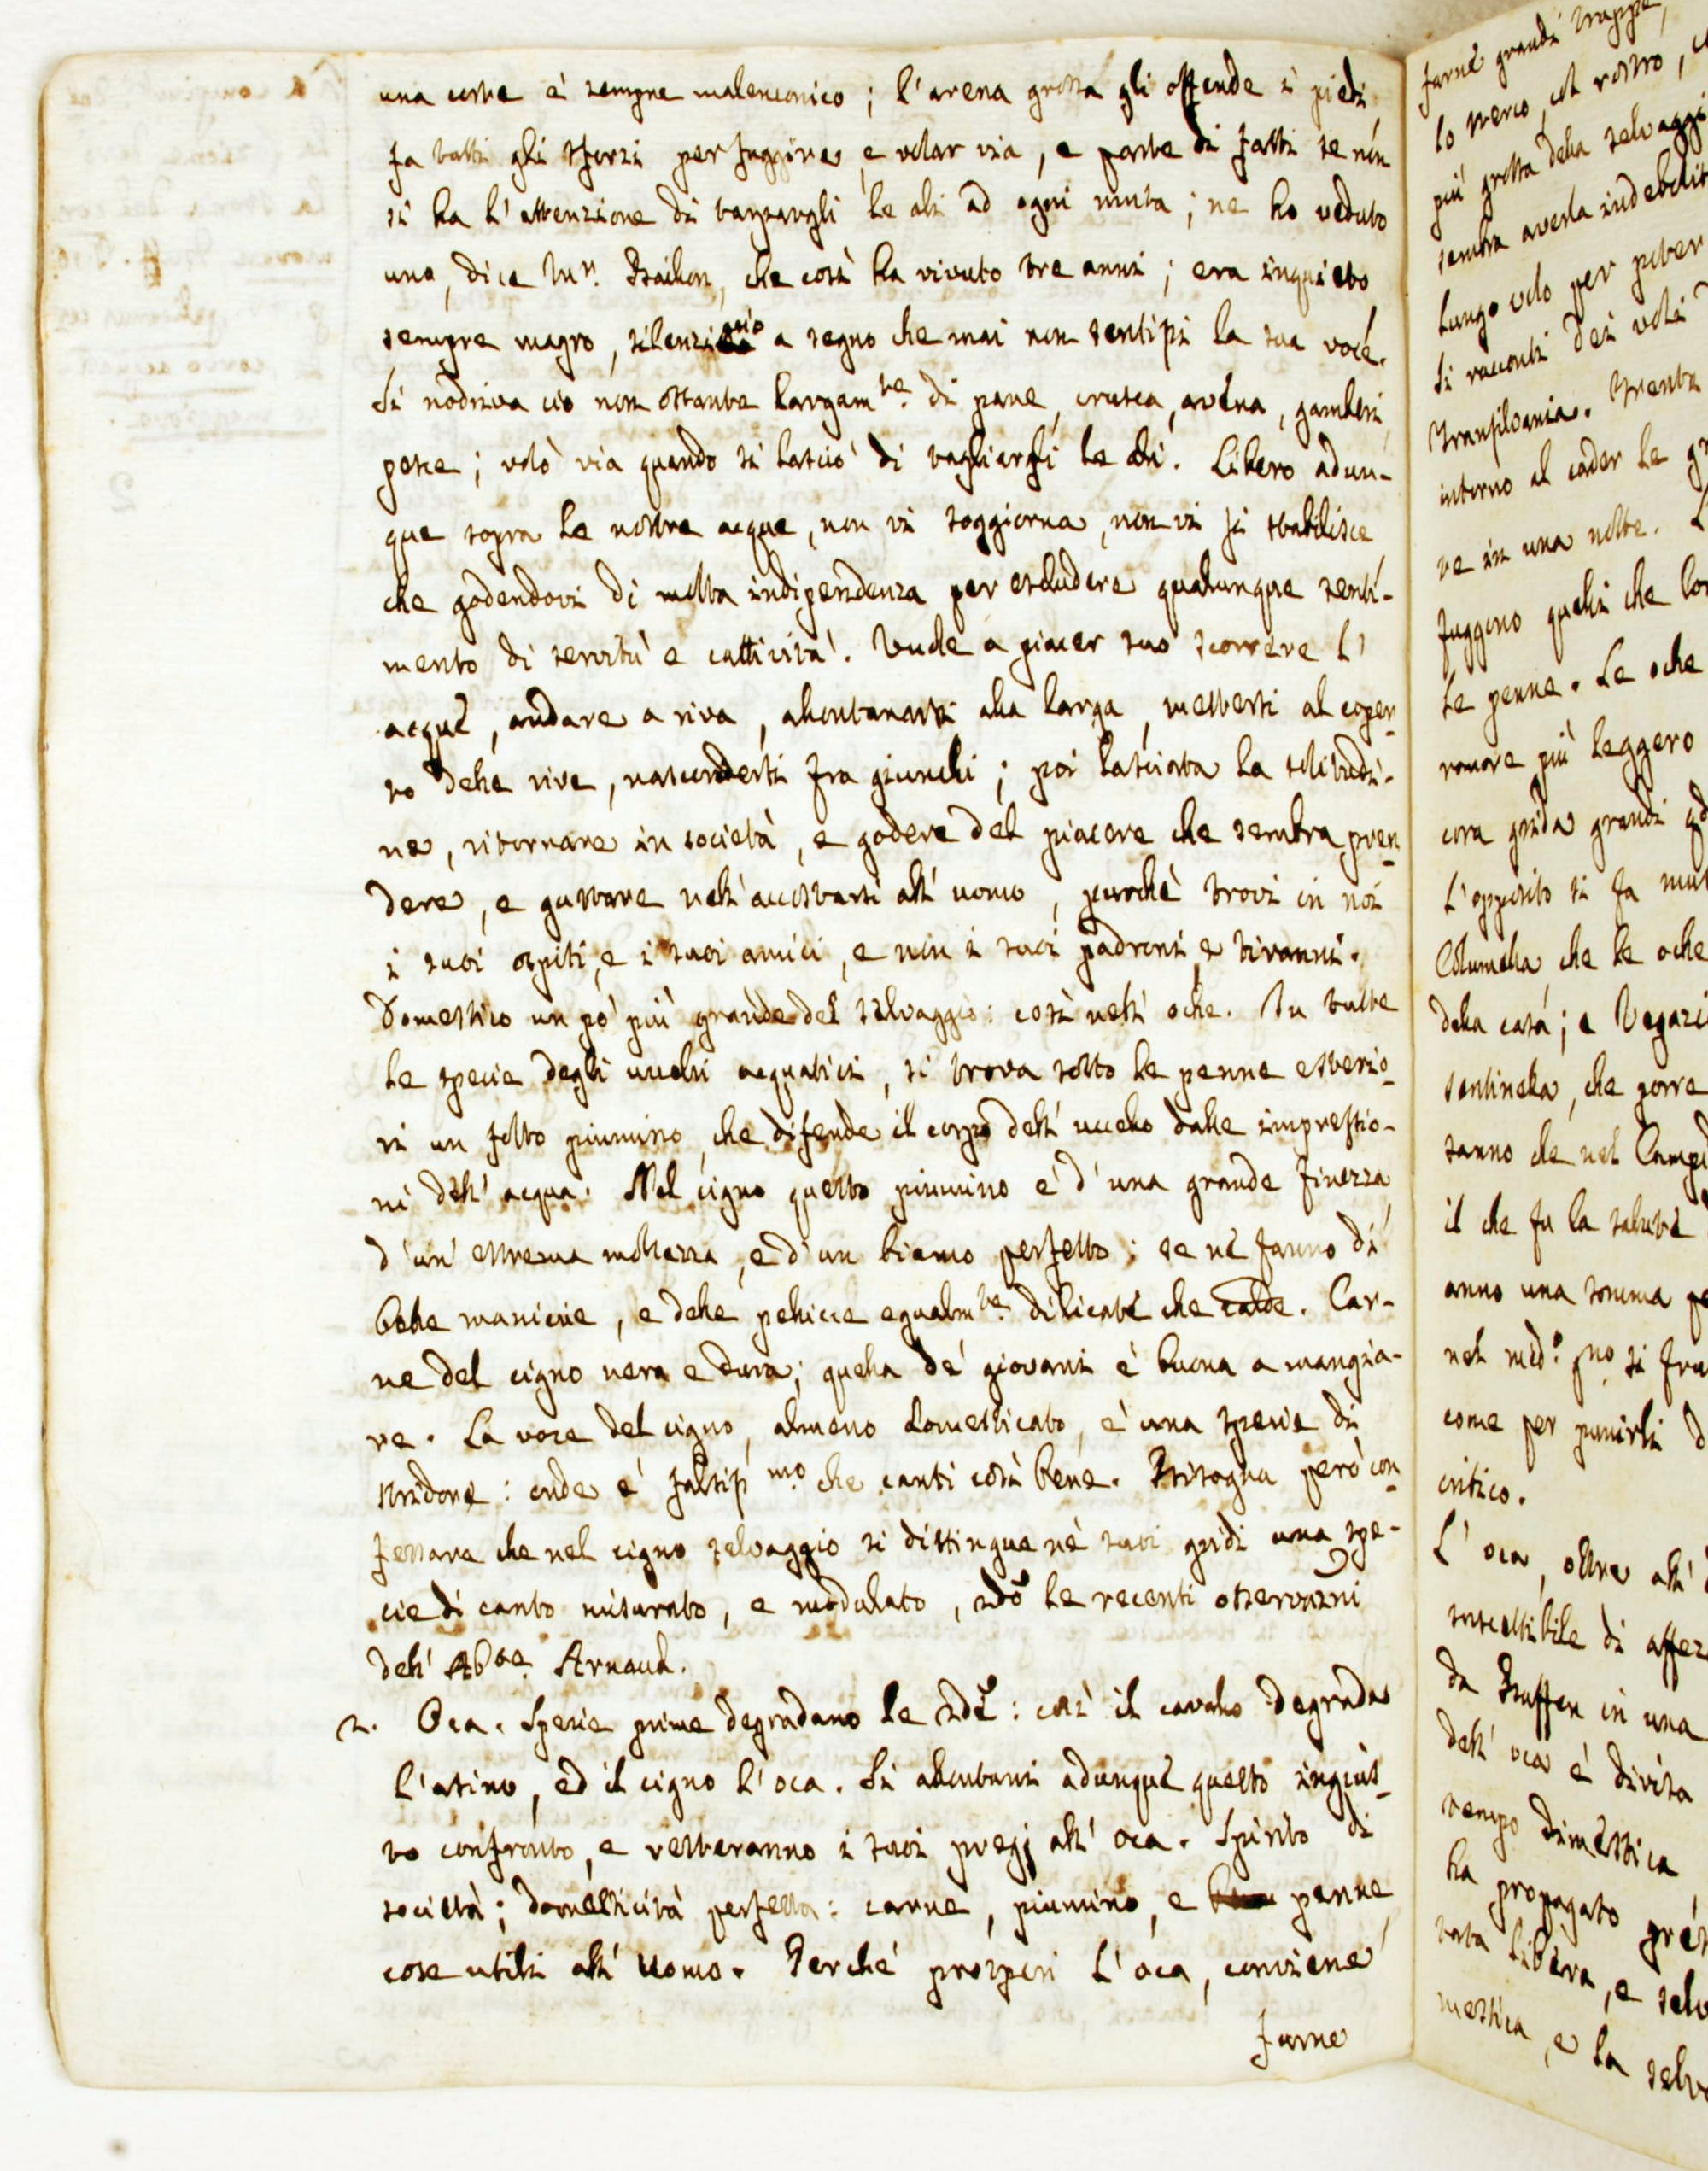 una corte è sempre malenconico; l'arena grossa gli offende i piedi,
fa tutti gli sforzi per fuggire, e volar via, e parte di fatti se non
si ha l'attenzione di tarpargli le ali ad ogni muta; ne ho veduto
uno, dice Mr. Baillon, che così ha vivuto tre anni; era inquieto
sempre magro, silenzioso a segno che mai non sentissi la sua voce.
Si nodriva ciò non ostante largamte. di pane, crusca, avena, gamberi,
pesce; volò via quando si lasciò di tagliargli le ali. Libero adun-
que sopra le nostre acque, non vi soggiorna, non vi si stabilisce
che godendovi di molta indipendenza per escludere qualunque senti-
mento di servitù e cattività. Vuole a piacer suo scorrere l'
acque, andare a riva, allontanarsi alla larga, mettersi al coper-
to delle rive, nascondersi fra giunchi; poi lasciata la solitudi-
ne, ritornare in società, e godere del piacere che sembra pren-
dere, e gustare nell'accostarsi all'uomo, purchè trovi in noi
i suoi ospiti, e i suoi amici, e non i suoi padroni e tiranni.
Domestico un pò più grande del selvaggio: così nell'oche. In tutte
le specie degli uccelli acquatici, si trova sotto le penne esterio-
ri un folto piumino, che difende il corpo dell'uccello dalle impressio-
ni dell'acqua. Nel cigno questo piumino è d'una grande finezza
d'un'estrema mollezza, e d'un bianco perfetto; se ne fanno di
belle manicie, e delle pellicce egualmte. dilicate che calde. Car-
ne del cigno nera e dura; quella de' giovani è buona a mangia-
re. La voce del cigno, almeno domesticato, è una specie di
stridore: onde è falsissmo. che canti così bene. Bisogna però con-
fessare che nel cigno selvaggio si distingue nè suoi gridi una spe-
cie di canto misurato, e modulato, 2do le recenti osservazni
dell' Abae. Arnaud.
2. Oca. Specie prime degradano le 2de: così il cavallo degrada
l'asino, ed il cigno l'oca. Si allontani adunque questo ingius-
to confronto, e resteranno i suoi pregj all'oca. Spirito di
società; domesticità perfetta: carne, piumino, e penne,
cose utili all'uomo. Perchè prosperi l'oca, conviene
farne
farne grandi truppe,
lo sterco, col rostro,
più grossa della selvaggi
sembra averla indebolit
lungo volo per poter
Si racconti dei voli
Transilvania. Trenta
intorno al cader le
re in una notte. L
fuggono quelli che
le penne. Le oche
romore più leggero
cora grida grandi
L'opposito si fa
Columella, che le oche
della casa; e Vegezi
sentinella, che porre
sanno che nel Campi
il che fu la salute
anno una somma
nel med.o gno. si
come per punirli
critico.
L'oca, oltre all'
suscettibile di affez
da Buffon in una
dell'oca è divisa
tempo dimestica,
ha propagato
tata libera, e selv
mestica, e la selv